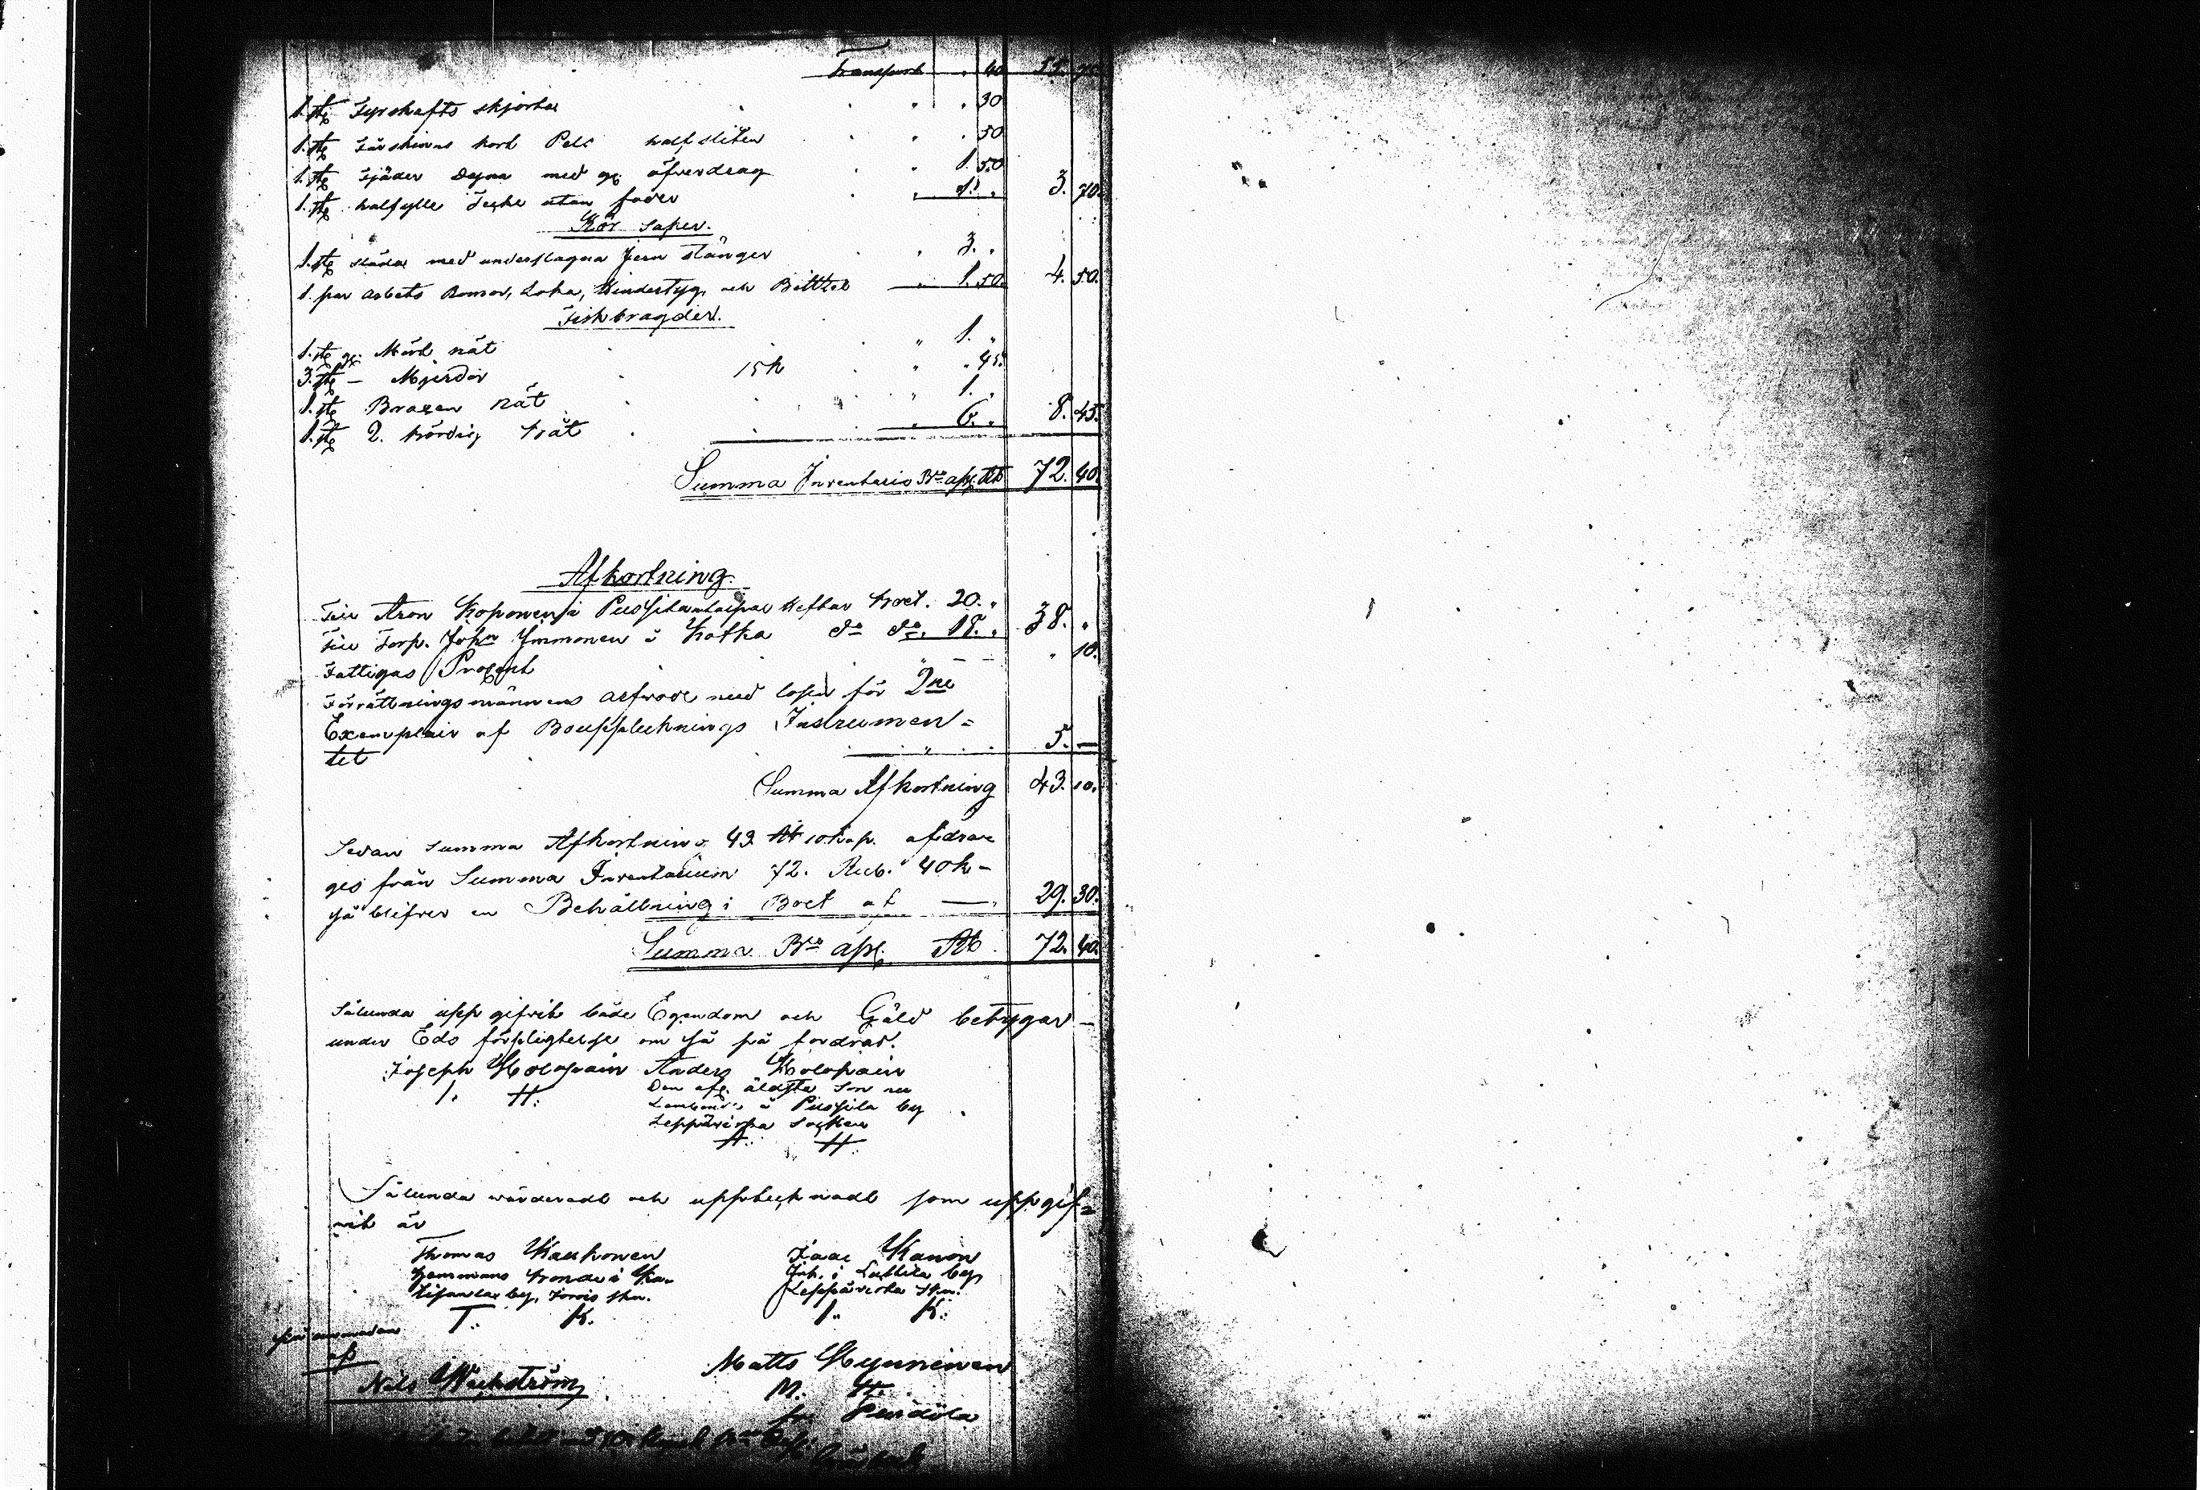 Transport " 40 55. 75
1. st. Fyrskafts skjorta " " 30
1. st. Fårskinns kort Pels halfsliten " " 50
1. st. Fjäder Dyna med g. öfverdrag " 1. 50
1. st. halfylle Tecke utan foder " 1. " 3. 70.
Kör saker.
1. st. släda med underslagna Jern stänger " 3. "
1. par arbets Bomor, Loka, Hindertyg, och Bittzel " 1. 50. 4. 50.
Fiskbragder.
1. st. g. Mört nät " 1. "
3. st. — Mjerdor 15 k " " 45.
1. st. Braxen nät " 1. "
1. st. 2. not " 6. " 8. 45.
Summa Inventario Bco asg. Rb 72. 40.
Afkortning.
Till Aron Koponen i 20. "
Till Torp. John Immonen i Kotka do do. 18. " 38. "
Fattigas Procent " " 10.
Förrättningsmännens arfvode med lösen för 2ne
Exemplar af Bouppteknings Instrumen=
tet " 5. —
Summa Afkortning 43. 10.
Sedan summa Afkortning 43 Rb 10 kop. afdra=
ges från Summa Inventarium 72. Rub. 40 k —
så blifver en Behållning i Boet af — 29. 30.
Summa Bco asg. Rb 72. 40.
Sålunda uppgifvit både Egendom och Gäld betygar —
under Eds förpligtelse om så på fordras.
Joseph Holopain Anders Holopain
I. H. Den afl. äldsta Son
i Pussila by
Leppävirta Socken
A. H.
Sålunda värderadt och upptecknadt som uppgif=
vit är
Thomas Kauhonen Isaac Kanon
bonde i by
by, Jorois skn. Leppävirta Skn.
T. K. I. K.
af Matts Hynninen
Nils M. H.